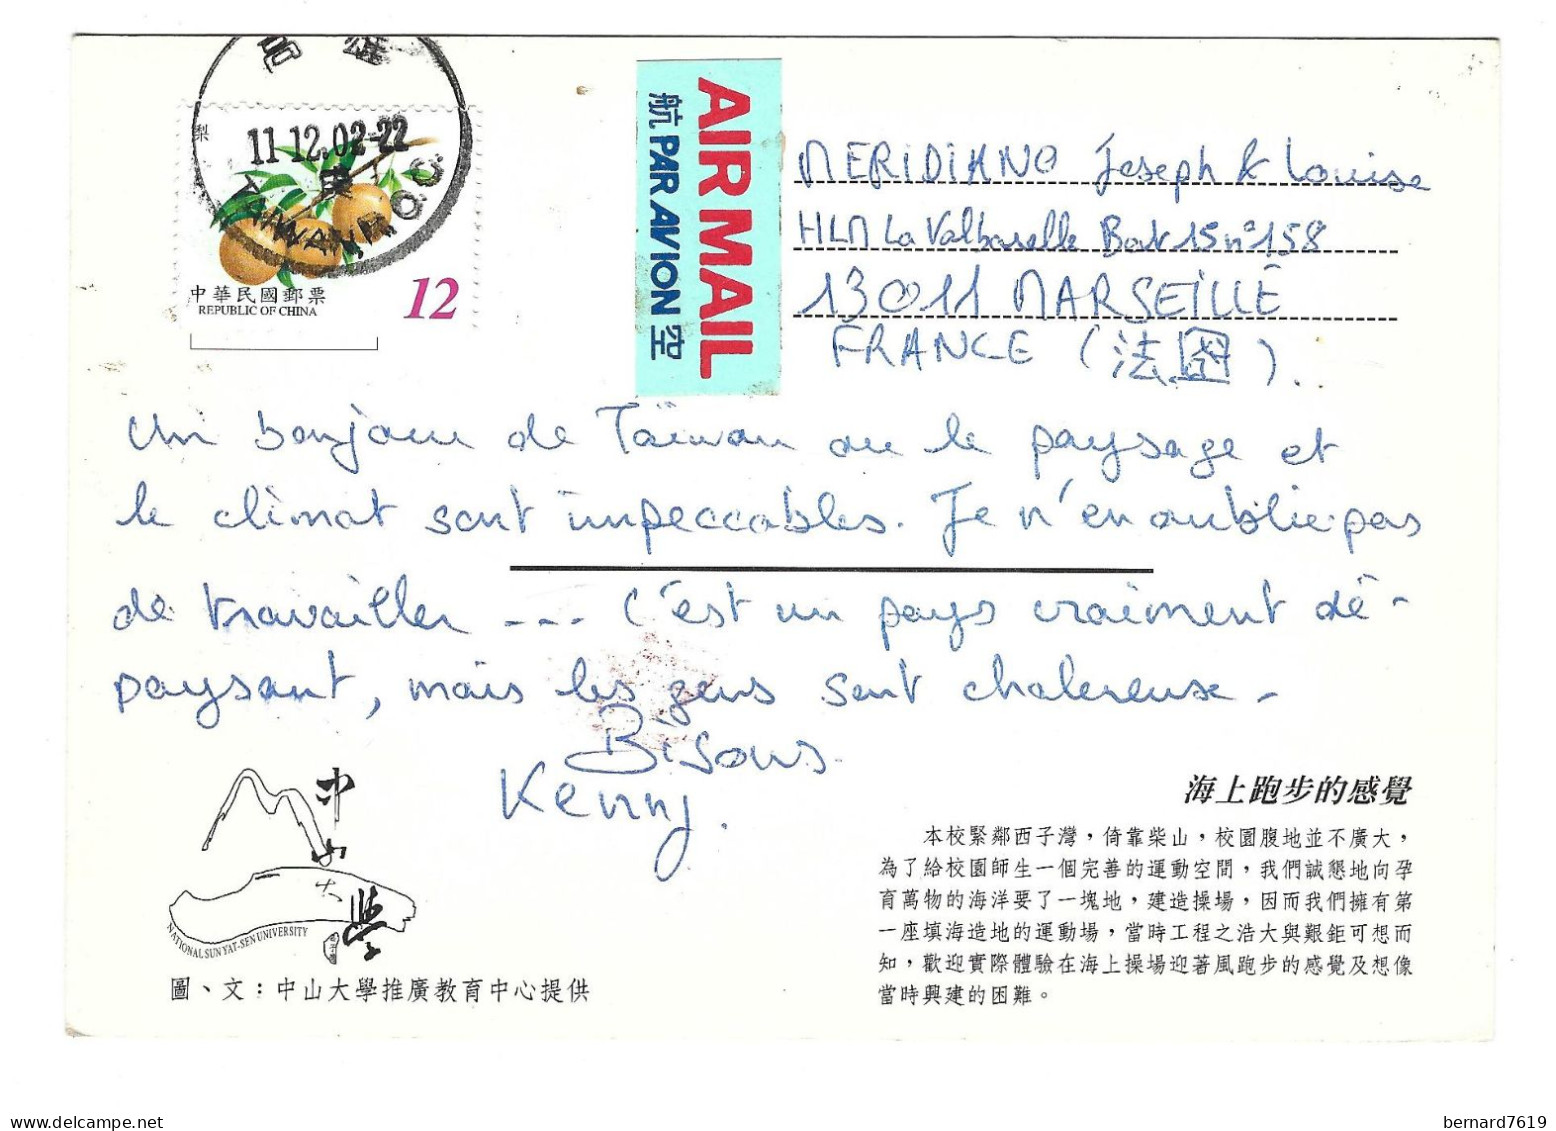 高雄
梨
11.12.02-22
TAIWAN R.O.C.
中華民國郵票
REPUBLIC OF CHINA
12
AIR MAIL
航 PAR AVION 空
MERIDIANO Joseph & Louise
HLM La Valbarelle Bat 15 n°158
13011 MARSEILLE
FRANCE (法國).
Un bonjour de Taïwan ou le paysage et
le climat sont impeccables. Je n'en oublie pas
de travailler --- C'est un pays vraiment dé-
paysant, mais les gens sont chalereuse.
Bisous
Kenny.
中山大學
NATIONAL SUN YAT-SEN UNIVERSITY
圖、文：中山大學推廣教育中心提供
海上跑步的感覺
本校緊鄰西子灣，倚靠柴山，校園腹地並不廣大，
為了給校園師生一個完善的運動空間，我們誠懇地向孕
育萬物的海洋要了一塊地，建造操場，因而我們擁有第
一座填海造地的運動場，當時工程之浩大與艱鉅可想而
知，歡迎實際體驗在海上操場迎著風跑步的感覺及想像
當時興建的困難。
delcampe.net
bernard7619